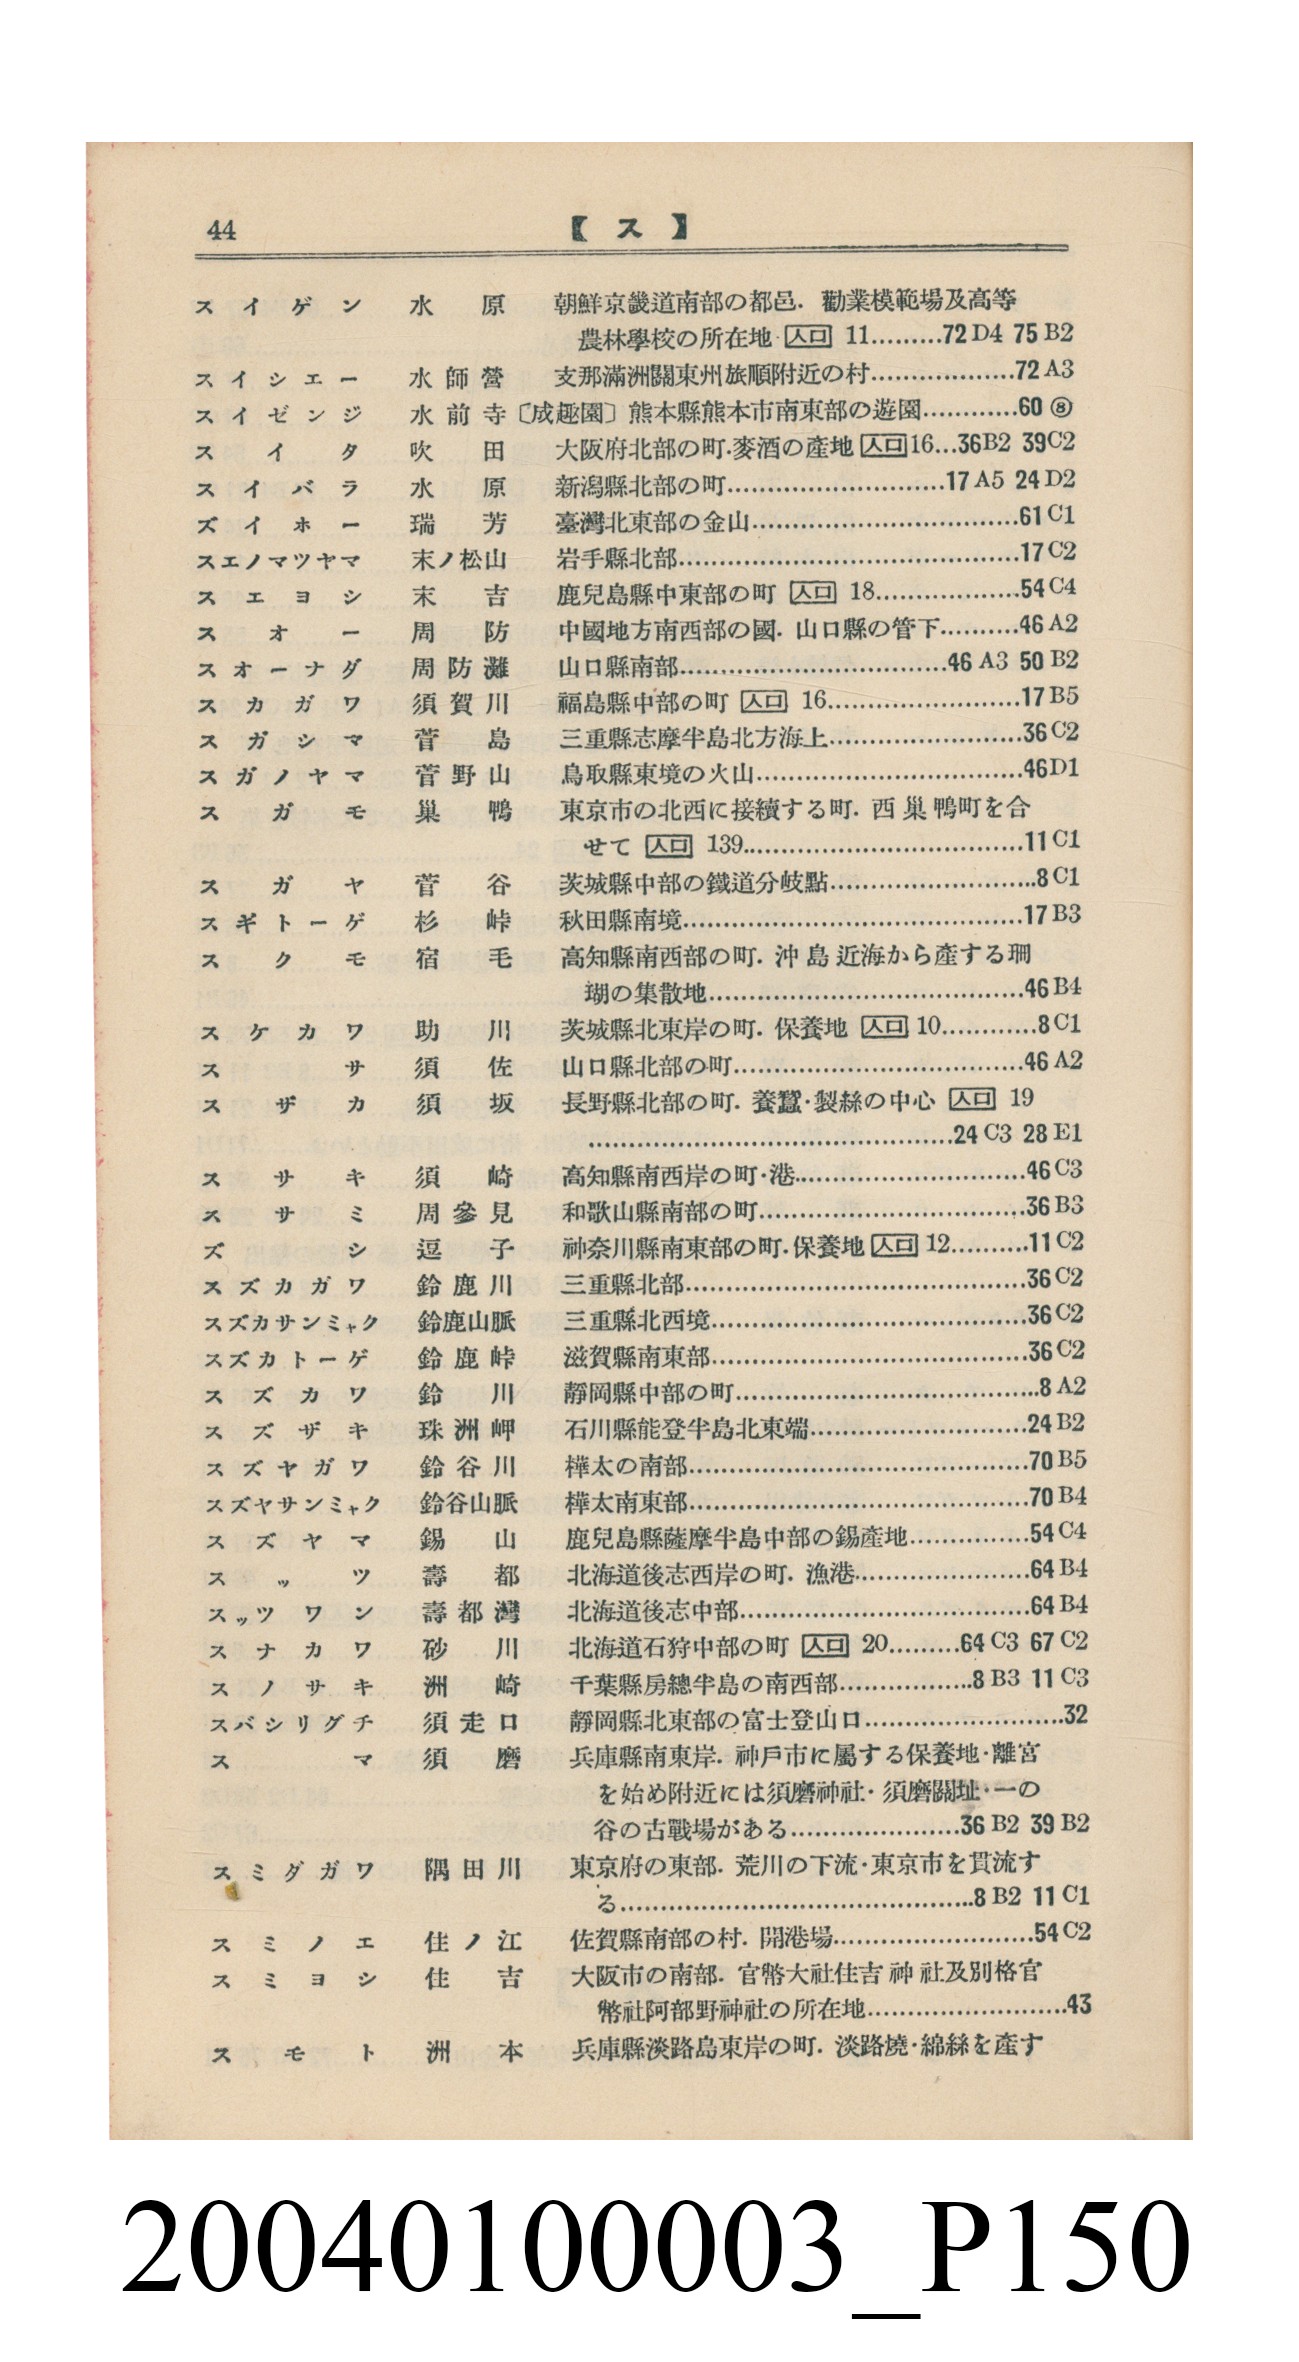 44 【ス】
スイゲン 水原 朝鮮京畿道南部の都邑. 勸業模範場及高等
農林學校の所在地· 人口 11.........72 D4 75 B2
スイシエー 水師營 支那滿洲關東州旅順附近の村..................72 A3
スイゼンジ 水前寺〔成趣園〕熊本縣熊本市南東部の遊園............60 ⑧
スイタ 吹田 大阪府北部の町·麥酒の產地 人口 16...36 B2 39 C2
スイバラ 水原 新潟縣北部の町...........................17 A5 24 D2
ズイホー 瑞芳 臺灣北東部の金山.................................61 C1
スエノマツヤマ 末ノ松山 岩手縣北部..........................................17 C2
スエヨシ 末吉 鹿兒島縣中東部の町 人口 18..................54 C4
スオー 周防 中國地方南西部の國. 山口縣の管下..........46 A2
スオーナダ 周防灘 山口縣南部.................................46 A3 50 B2
スカガワ 須賀川 福島縣中部の町 人口 16........................17 B5
スガシマ 菅島 三重縣志摩半島北方海上........................36 C2
スガノヤマ 菅野山 鳥取縣東境の火山.................................46 D1
スガモ 巢鴨 東京市の北西に接續する町. 西巢鴨町を合
せて 人口 139..................................11 C1
スガヤ 菅谷 茨城縣中部の鐵道分岐點..........................8 C1
スギトーゲ 杉峠 秋田縣南境..........................................17 B3
スクモ 宿毛 高知縣南西部の町. 沖島近海から產する珊
瑚の集散地.......................................46 B4
スケカワ 助川 茨城縣北東岸の町. 保養地 人口 10............8 C1
スサ 須佐 山口縣北部の町....................................46 A2
スザカ 須坂 長野縣北部の町. 養蠶·製絲の中心 人口 19
.............................................24 C3 28 E1
スサキ 須崎 高知縣南西岸の町·港.............................46 C3
スサミ 周參見 和歌山縣南部の町.................................36 B3
ズシ 逗子 神奈川縣南東部の町.保養地 人口 12..........11 C2
スズカガワ 鈴鹿川 三重縣北部..........................................36 C2
スズカサンミャク 鈴鹿山脈 三重縣北西境.......................................36 C2
スズカトーゲ 鈴鹿峠 滋賀縣南東部.......................................36 C2
スズカワ 鈴川 靜岡縣中部の町......................................8 A2
スズザキ 珠洲岬 石川縣能登半島北東端...........................24 B2
スズヤガワ 鈴谷川 樺太の南部..........................................70 B5
スズヤサンミャク 鈴谷山脈 樺太南東部..........................................70 B4
スズヤマ 錫山 鹿兒島縣薩摩半島中部の錫產地...............54 C4
スッツ 壽都 北海道後志西岸の町. 漁港.....................64 B4
スッツワン 壽都灣 北海道後志中部....................................64 B4
スナカワ 砂川 北海道石狩中部の町 人口 20.........64 C3 67 C2
スノサキ 洲崎 千葉縣房總半島の南西部.................8 B3 11 C3
スバシリグチ 須走口 靜岡縣北東部の富士登山口.........................32
スマ 須磨 兵庫縣南東岸. 神戶市に屬する保養地·離宮
を始め附近には須磨神社· 須磨關址·一の
谷の古戰場がある.....................36 B2 39 B2
スミダガワ 隅田川 東京府の東部. 荒川の下流·東京市を貫流す
る............................................8 B2 11 C1
スミノエ 住ノ江 佐賀縣南部の村. 開港場.........................54 C2
スミヨシ 住吉 大阪市の南部. 官幣大社住吉神社及別格官
幣社阿部野神社の所在地.........................43
スモト 洲本 兵庫縣淡路島東岸の町. 淡路燒·綿絲を產す
20040100003_P150